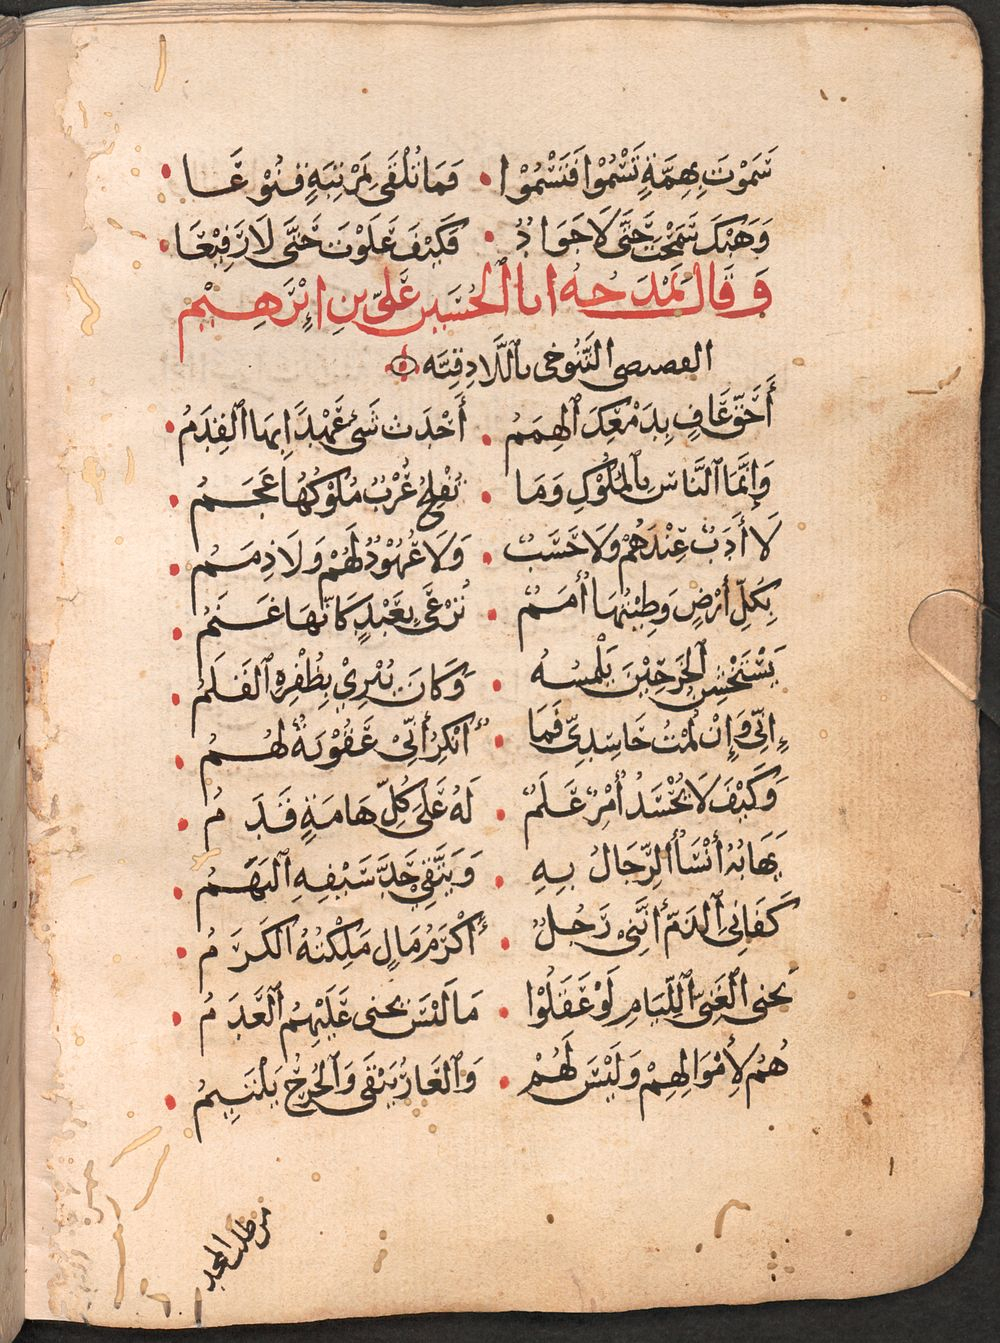 سَمَوْتَ بِهِمَّةٍ تَسْمُوْا فَتَسْمُوْا • فَمَا تُلْقَى بِمَرْتَبَةٍ قَنُوْعَا •
وَهَبْكَ سَمَحْتَ حَتَّى لَا جَوَادٌ • فَكَيْفَ عَلَوْتَ حَتَّى لَا رَفِيْعَا •
وَقَالَ يَمْدَحُهُ ابا الْحُسَيْنِ عَلِىّ بن اِبْرَهِيْم
التَّنُوخى بِاللَّاذِقِيَّه
أَحَقُّ عَافٍ بِدَمْعِكَ الْهِمَمُ • أَحْدَثُ شَىْءٍ عَهْدًا بِهَا الْقِدَمُ •
وَإِنَّمَا النَّاسُ بِالْمُلُوْكِ وَمَا • تُفْلِحُ عُرْبٌ مُلُوْكُهَا عَجَمُ •
لَا أَدَبٌ عِنْدَهُمْ وَلَا حَسَبٌ • وَلَا عُهُوْدٌ لَهُمْ وَلَا ذِمَمُ •
بِكُلِّ أَرْضٍ وَطِئْتُهَا أُمَمٌ • تُرْعَى بِعَبْدٍ كَاَنَّهَا غَنَمُ •
يَسْتَخْشِنُ الْخَزَّ حِيْنَ يَلْمِسُهُ • وَكَانَ يُبْرِيْ بِظُفْرِهِ الْقَلَمُ •
إِنِّى وَإِنْ لُمْتُ حَاسِدِىَّ فَمَا • أُنْكِرُ أَنِّىْ عُقُوْبَةٌ لَهُمُ •
وَكَيْفَ لَا يُحْسَدُ أمْرٌ عَلَمٌ • لَهُ عَلَى كُلِّ هَامَةٍ قَدَمُ •
يَهَابُهُ أَبْسَأُ الرِّجَالِ بِهِ • وَيَتَّقِى حَدَّ سَيْفِهِ الْبُهَمُ •
كَفَانِى الذَّمَّ أَنَّنِىْ رَجُلٌ • أَكْرَمُ مَالٍ مَلَكْتُهُ الْكَرَمُ •
يجنى الْغِنَى لِلِّيَامِ لَوْ عَقَلُوْا • مَا لَيْسَ يجنى عَلَيْهِمُ الْعَدَمُ •
هُمُ لِأَمْوَالِهِمْ وَلَيْسَ لَهُمْ • وَالْعَارُ يَبْقَى وَالْجُرْحُ يَلْتَيِمُ •
من طلب المجد